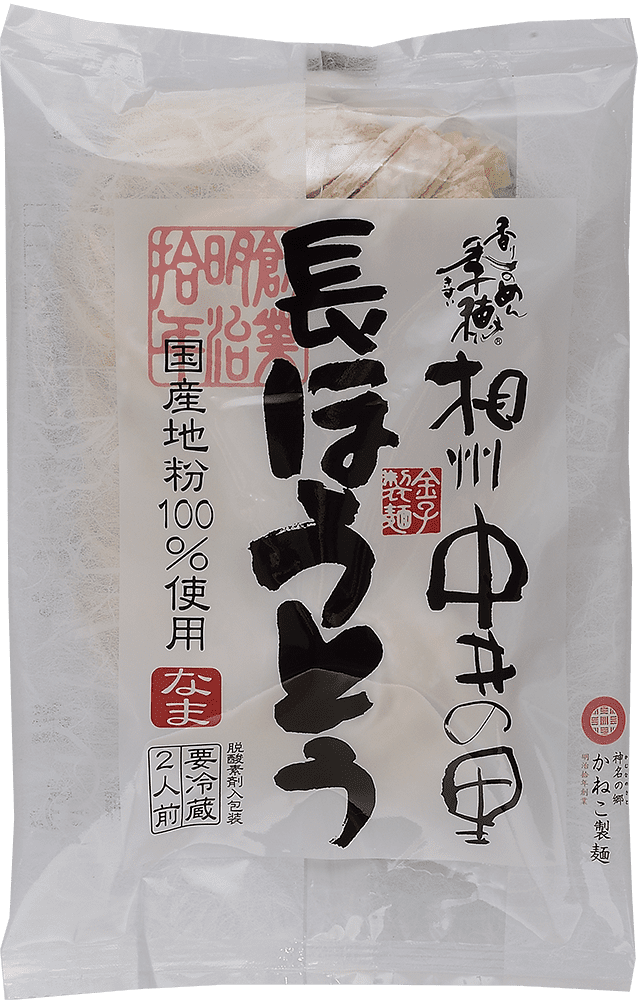 香りのめん
季穂
ます
®
相州
中井の里
金子
製麺
長ほうとう
創業
明治
拾年
国産地粉100%使用
なま
脱酸素剤入包装
要冷蔵
2人前
神名の郷
かねこ製麺
明治拾年創業